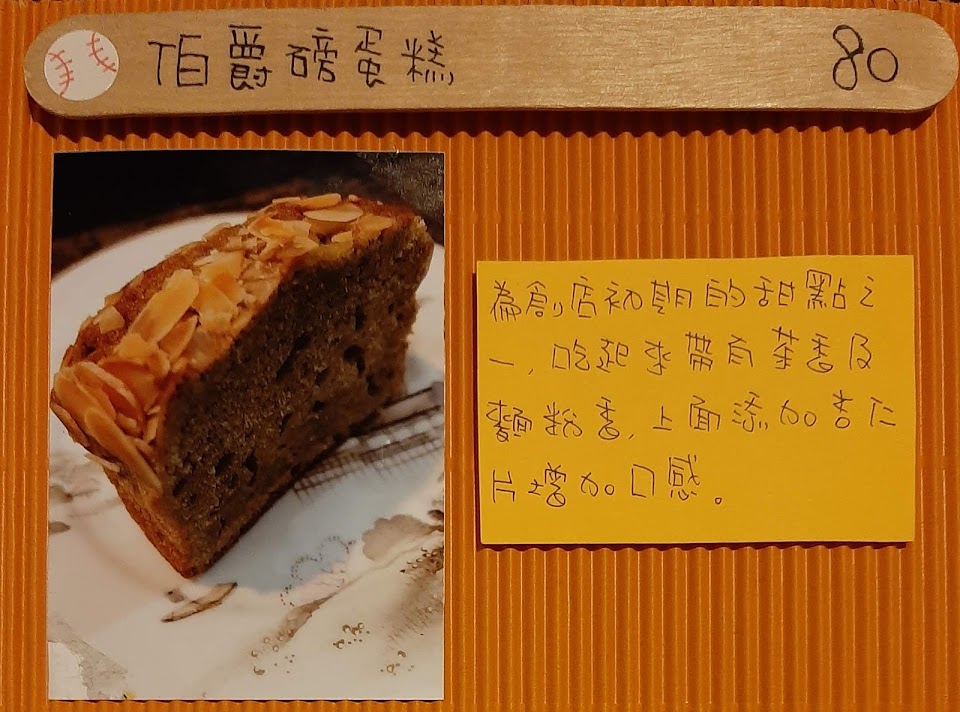 伯爵磅蛋糕 80
為創店初期的甜點之
一,吃起來帶有茶香及
麵粉香,上面添加杏仁
片增加口感。